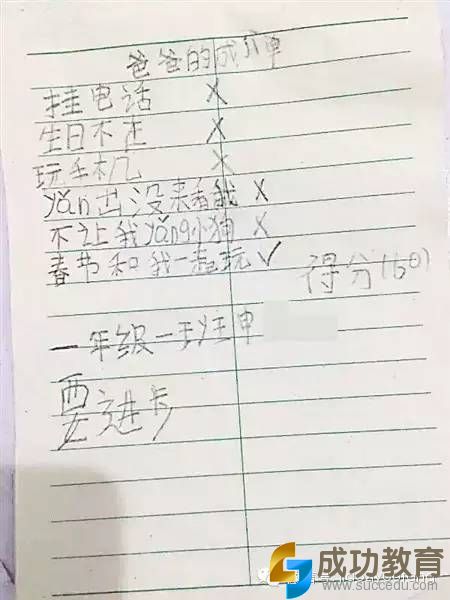 爸爸的成绩单
挂电话 ×
生日不在 ×
玩手机 ×
yǎn出没来看我 ×
不让我yǎng小狗 ×
春节和我一起玩 ✓
得分(60)
一年级一班
要进步
成功教育
www.succedu.com